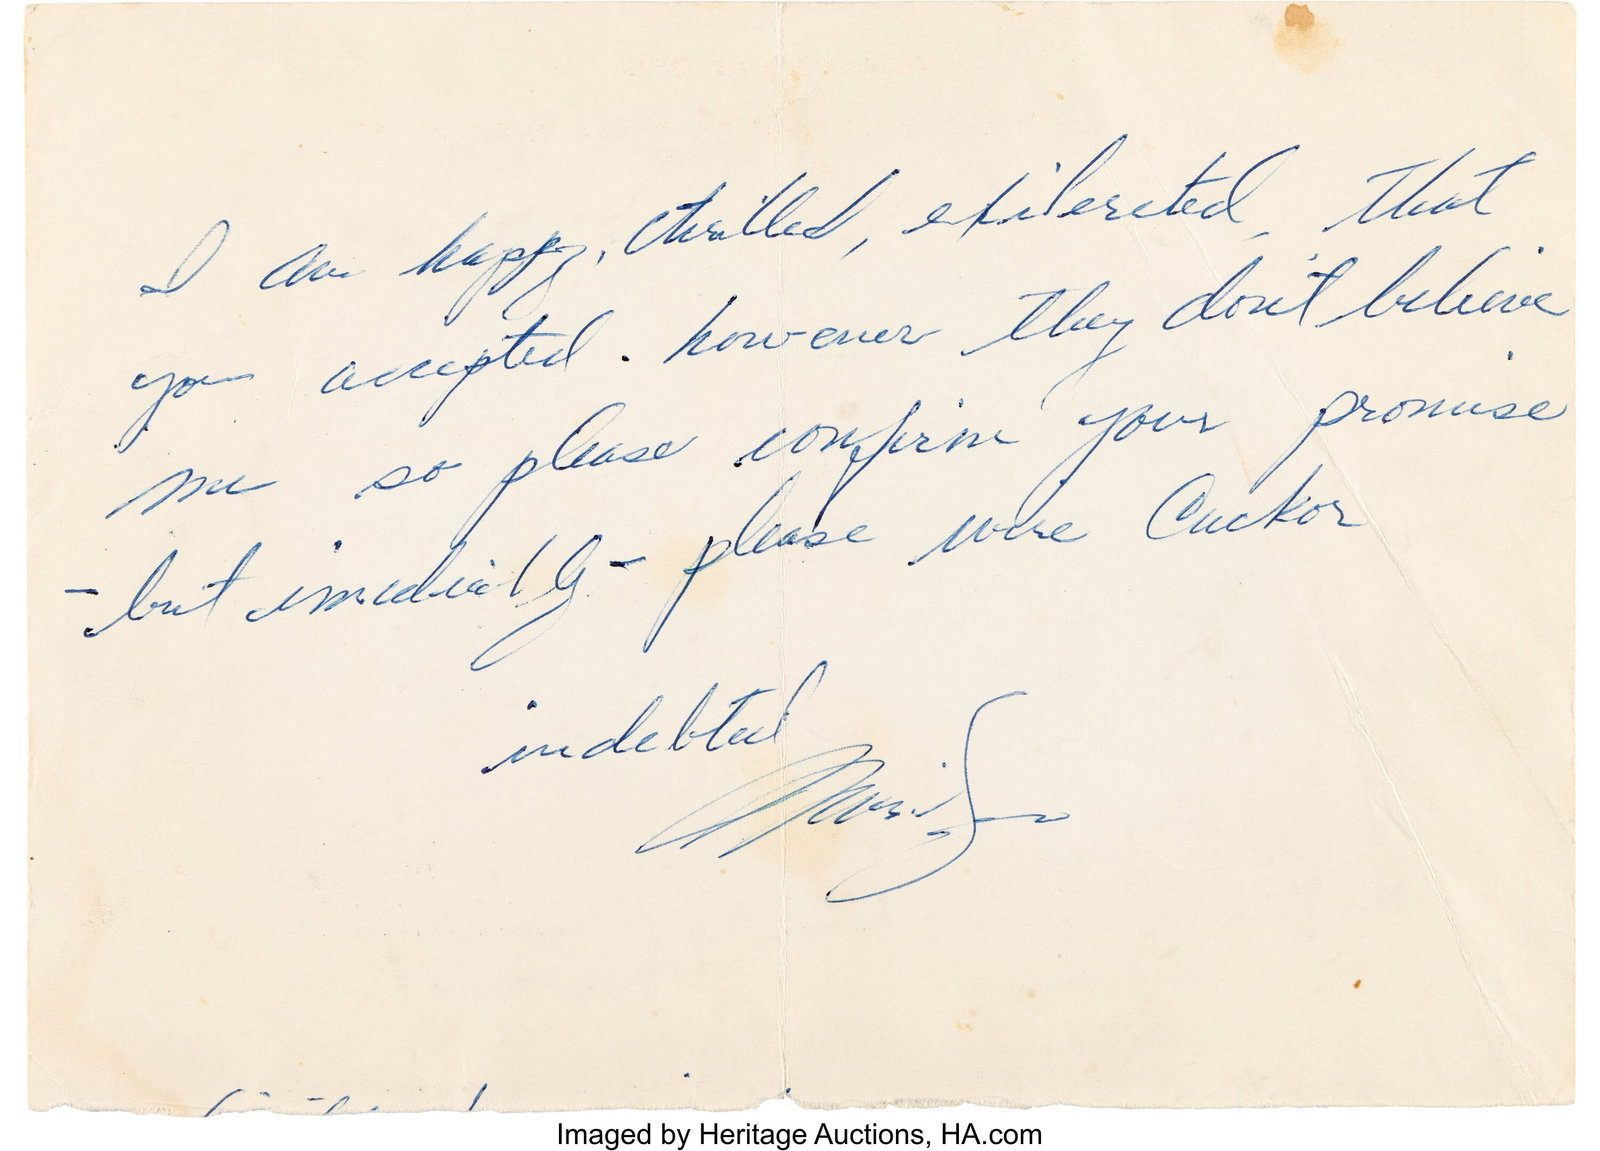 I am happy, thrilled, exilerated, that
you accepted. however they don't believe
me so please confirm your promise
- but imediatly - please wire Cuckor
indebted
Imaged by Heritage Auctions, HA.com